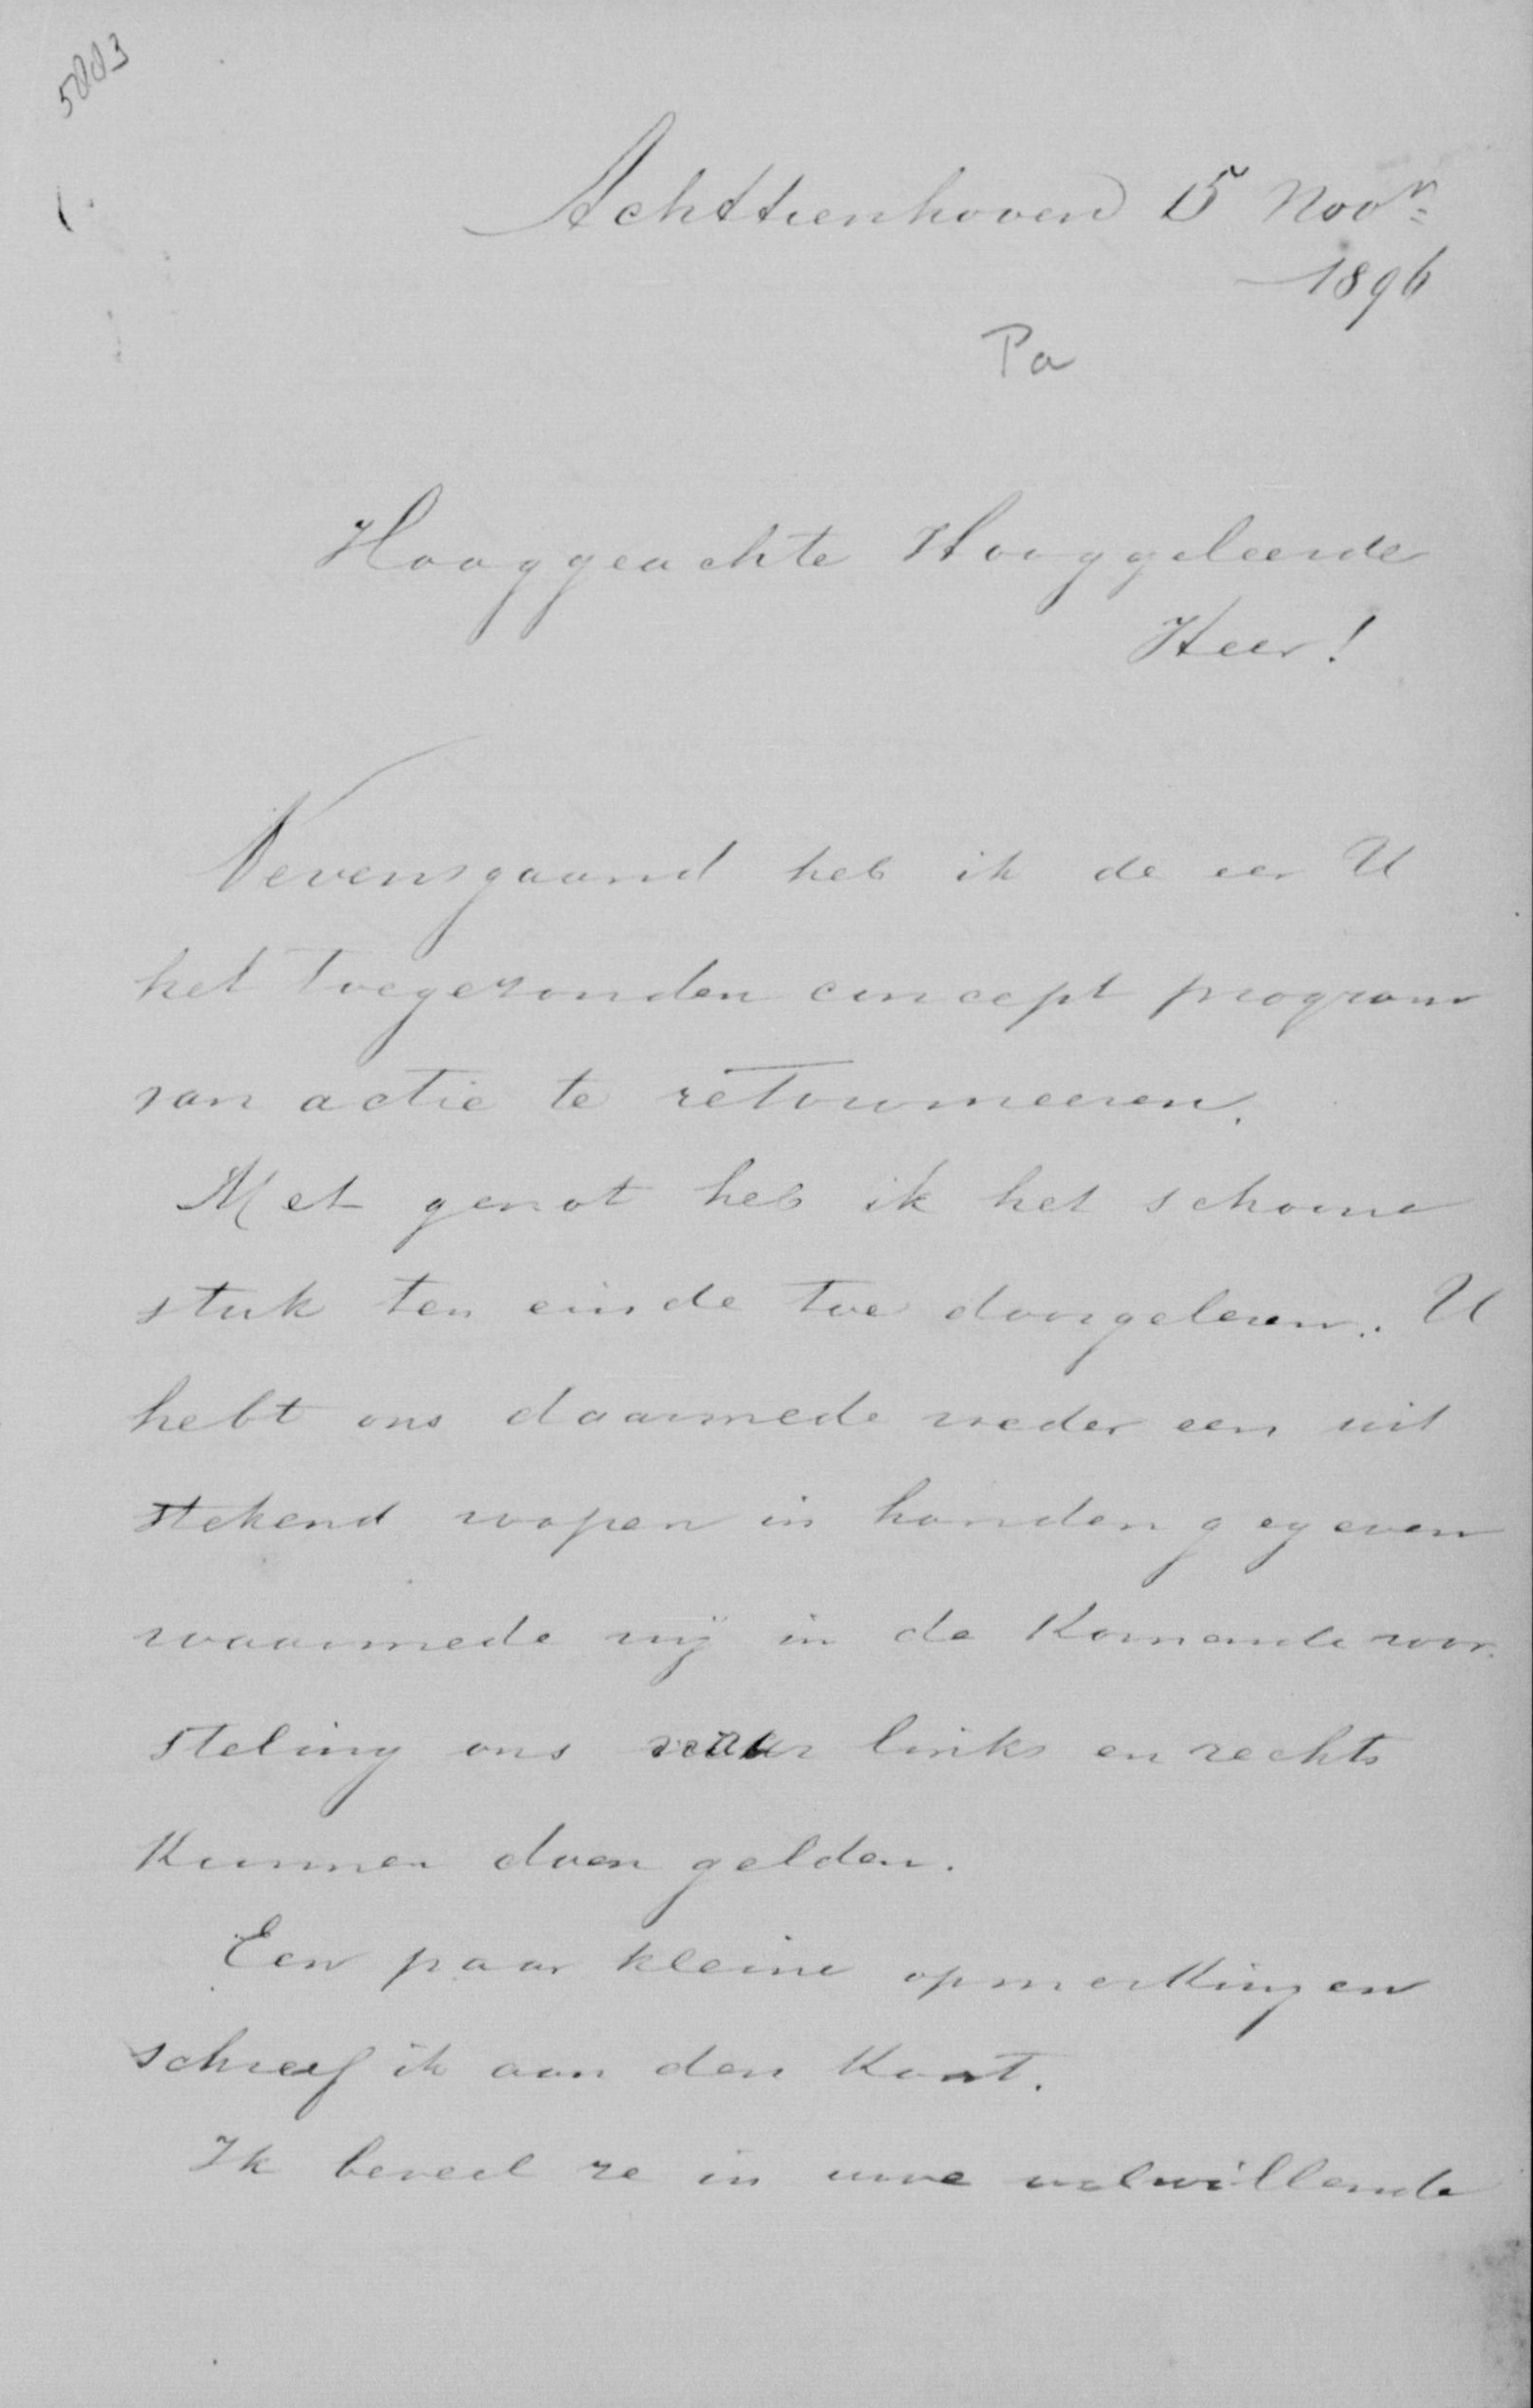 5883
Achttienhoven 15 Novr.
1896
Pa
Hooggeachte Hooggeleerde
Heer!
Nevensgaand heb ik de eer U
het toegezonden concept program
van actie te retourneeren.
Met genot heb ik het schoone
stuk ten einde toe doorgelezen. U
hebt ons daarmede weder een uit
stekend wapen in handen gegeven
waarmede wij in de Komende wor
steling ons naar links en rechts
Kunnen doen gelden.
Een paar kleine opmerkingen
schreef ik aan den Kant.
Ik beveel ze in uwe welwillende